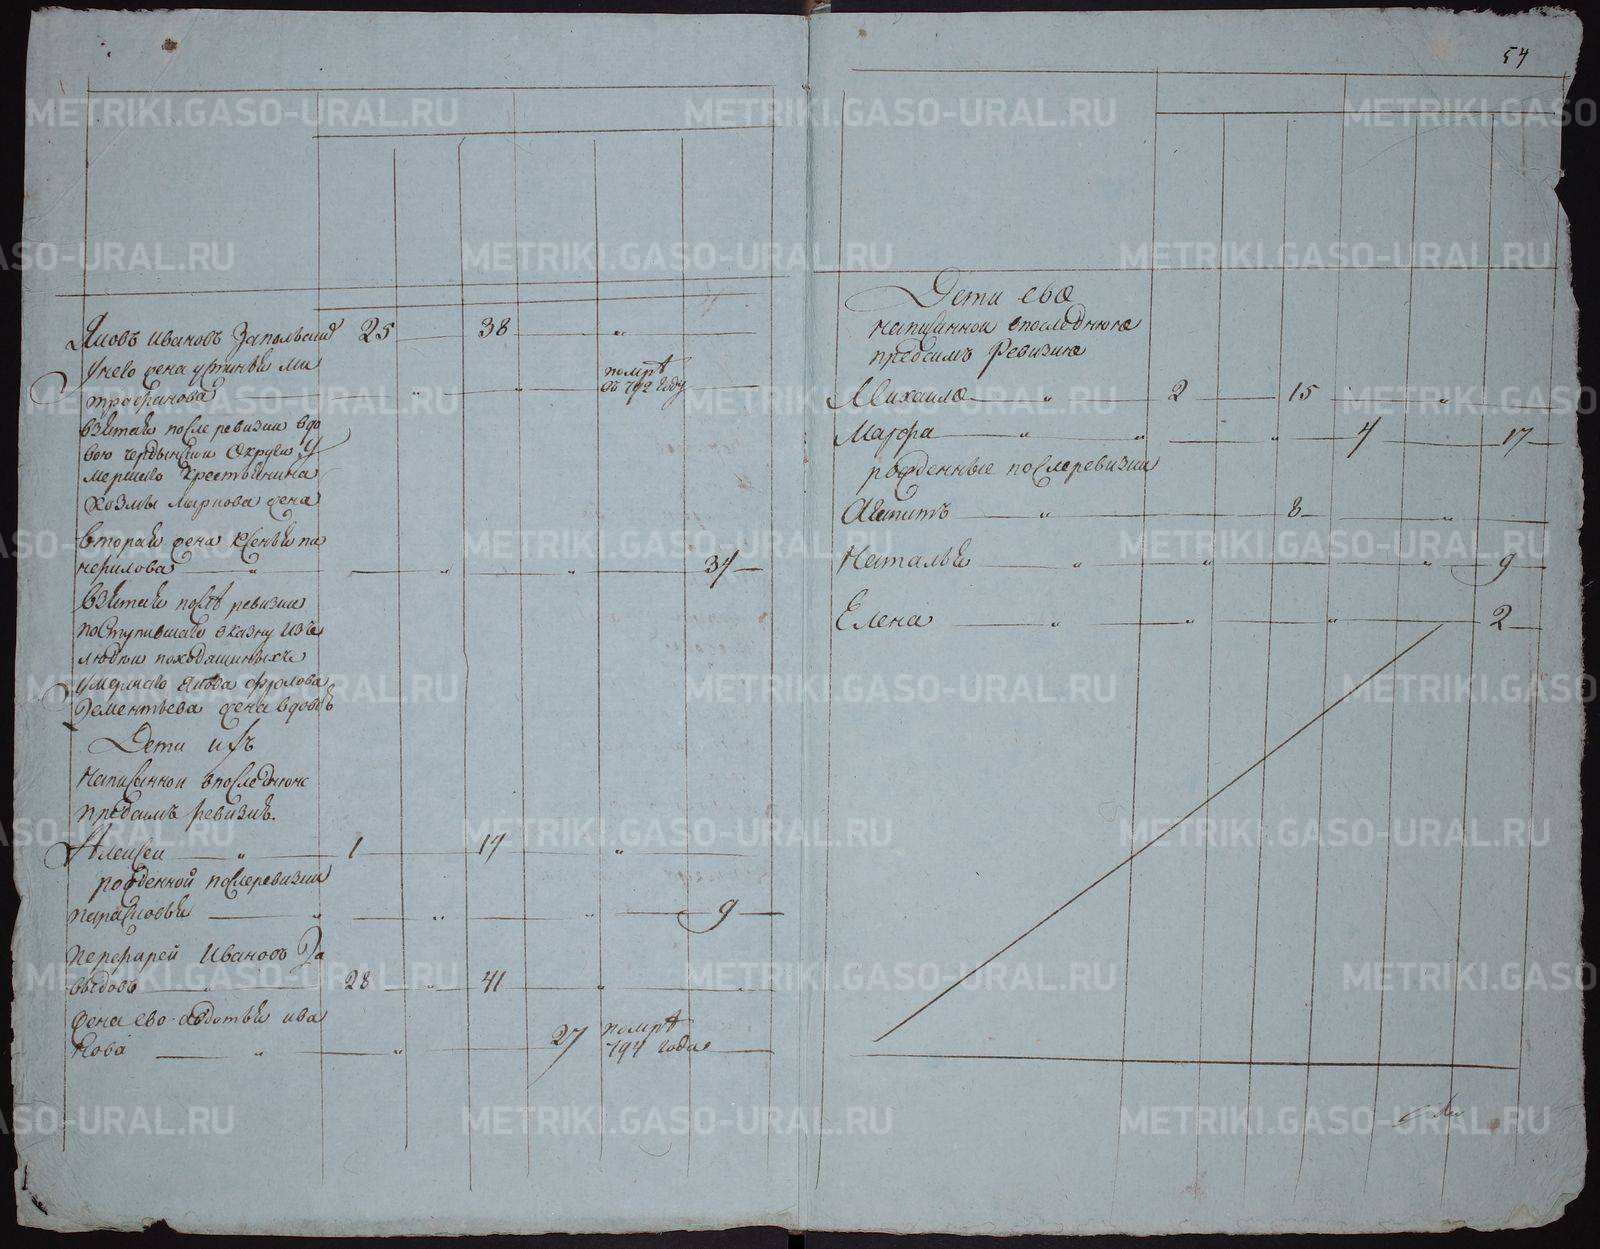 54
Яковъ Ивановъ Запольский 25 38 „
Унево жена устинья ми
трофанова „ „ помрѣ въ 792 году
взятая после ревизии вдо
вою чердынской округи у
мершаго крестьянина
Козмы Маркова жена
вторая жена Ксенья па
нкрилова „ „ „ 34
взятая послѣ ревизии
поступившаго вказну изъ
людей походяшиныхъ
умершаго якова фролова
Дементьева жена вдовѣ
Дети ихъ
написанной впоследнюю
предсимъ ревизию.
Алексеи „ 1 14 „
рожденной послеревизии
парасковья „ „ „ 9
Иванов Да
выдовъ „ 28 „ 41 „
жена ево авдотья ива
нова „ „ 27 помрѣ
794 года
Дети ево
написанной впоследнюю
предсимъ Ревизию
Михаило „ 2 15 „
Марфа „ „ „ 4 17
рожденные послеревизии
Агапитъ „ 8 „
Наталья „ „ „ 9
Елена „ „ „ 2
METRIKI.GASO-URAL.RU